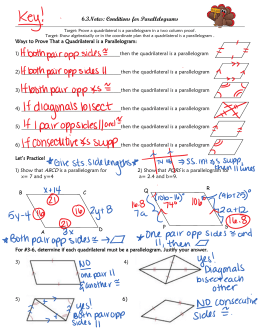 Key!
6.3 Notes: Conditions for Parallelograms
Target: Prove a quadrilateral is a parallelogram in a two column proof.
Target: Prove algebraically or in the coordinate plan that a quadrilateral is a parallelogram.
Ways to Prove That a Quadrilateral is a Parallelogram:
1) If both pair opp sides ≅ then the quadrilateral is a parallelogram
2) If both pair opp sides || then the quadrilateral is a parallelogram
3) If both pair opp ∠s ≅ then the quadrilateral is a parallelogram
4) If diagonals bisect then the quadrilateral is a parallelogram
5) If 1 pair opp sides || and ≅ then the quadrilateral is a parallelogram
6) If consecutive ∠s supp then the quadrilateral is a parallelogram
Let's Practice!
*Give sts side lengths*
⇒ SS. int ∠s supp, then || lines
1) Show that ABCD is a parallelogram for
x= 7 and y=4
2) Show that PQRS is a parallelogram for
a= 2.4 and b=9.
x+14
B C
21
5y-4 16 16 2y+8
21
A 3x D
*Both pair opp sides ≅
Q R
(10b-16) (9b+25)°
74° 106°
16.8
7a 2a+12
16.8
P S
*One pair opp sides ≅ and ||, then
For #3-6, determine if each quadrilateral must be a parallelogram. Justify your answer.
3) NO
one pair ||
& another ≅
4) yes!
Diagonals
bisect each
other
5) yes!
Both pair opp
sides ||
6) NO consecutive
sides ≅